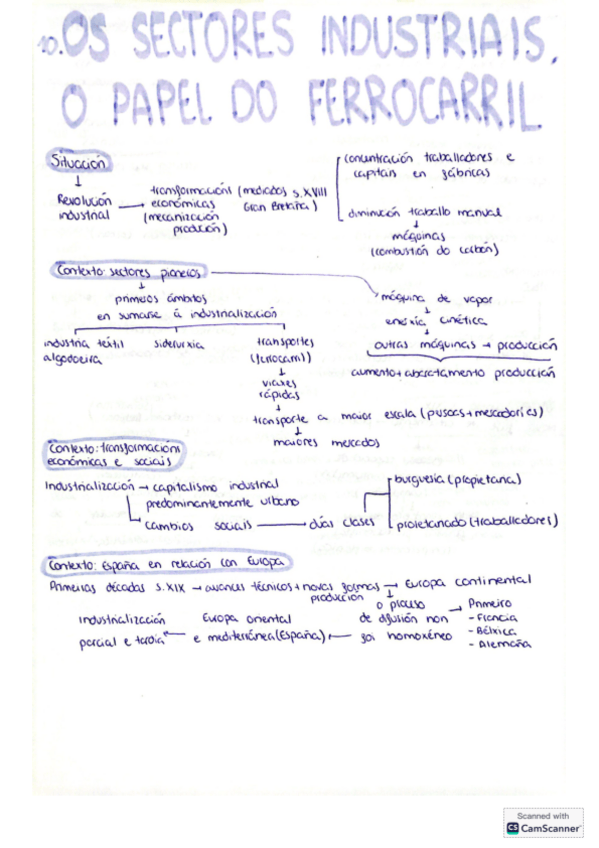 10. OS SECTORES INDUSTRIAIS,
O PAPEL DO FERROCARRIL
Situación
Revolución industrial → transformacións económicas (mecanización produción) (mediados s. XVIII Gran Bretaña)
concentración traballadores e capitais en fábricas
diminución traballo manual
↓
máquinas
(combustión do carbón)
Contexto: sectores pioneiros
↓
primeiros ámbitos
en sumarse á industrialización
industria téxtil algodoeira
siderurxia
transportes (ferrocarril)
↓
viaxes rápidas
↓
transporte a maior escala (persoas + mercadorías)
↓
maiores mercados
máquina de vapor
↓
enerxía cinética
↓
outras máquinas → producción
aumento + abaratamento producción
Contexto: transformacións
económicas e sociais
Industrialización → capitalismo industrial
predominantemente urbano
cambios sociais → dúas clases
burguesía (propietaria)
proletariado (traballadores)
Contexto: España en relación con Europa
Primeiras décadas s. XIX → avances técnicos + novas formas producción → Europa continental
↓
o proceso de difusión non foi homoxéneo
→ Primeiro
- Francia
- Bélxica
- Alemaña
← Europa oriental
e mediterránea (España)
← Industrialización
parcial e tardía
Scanned with
CS CamScanner